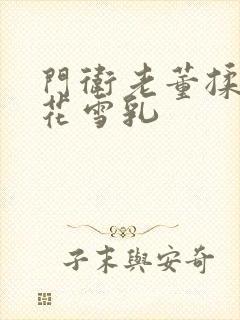 門衛老董揉
花雪乳
子末與安奇